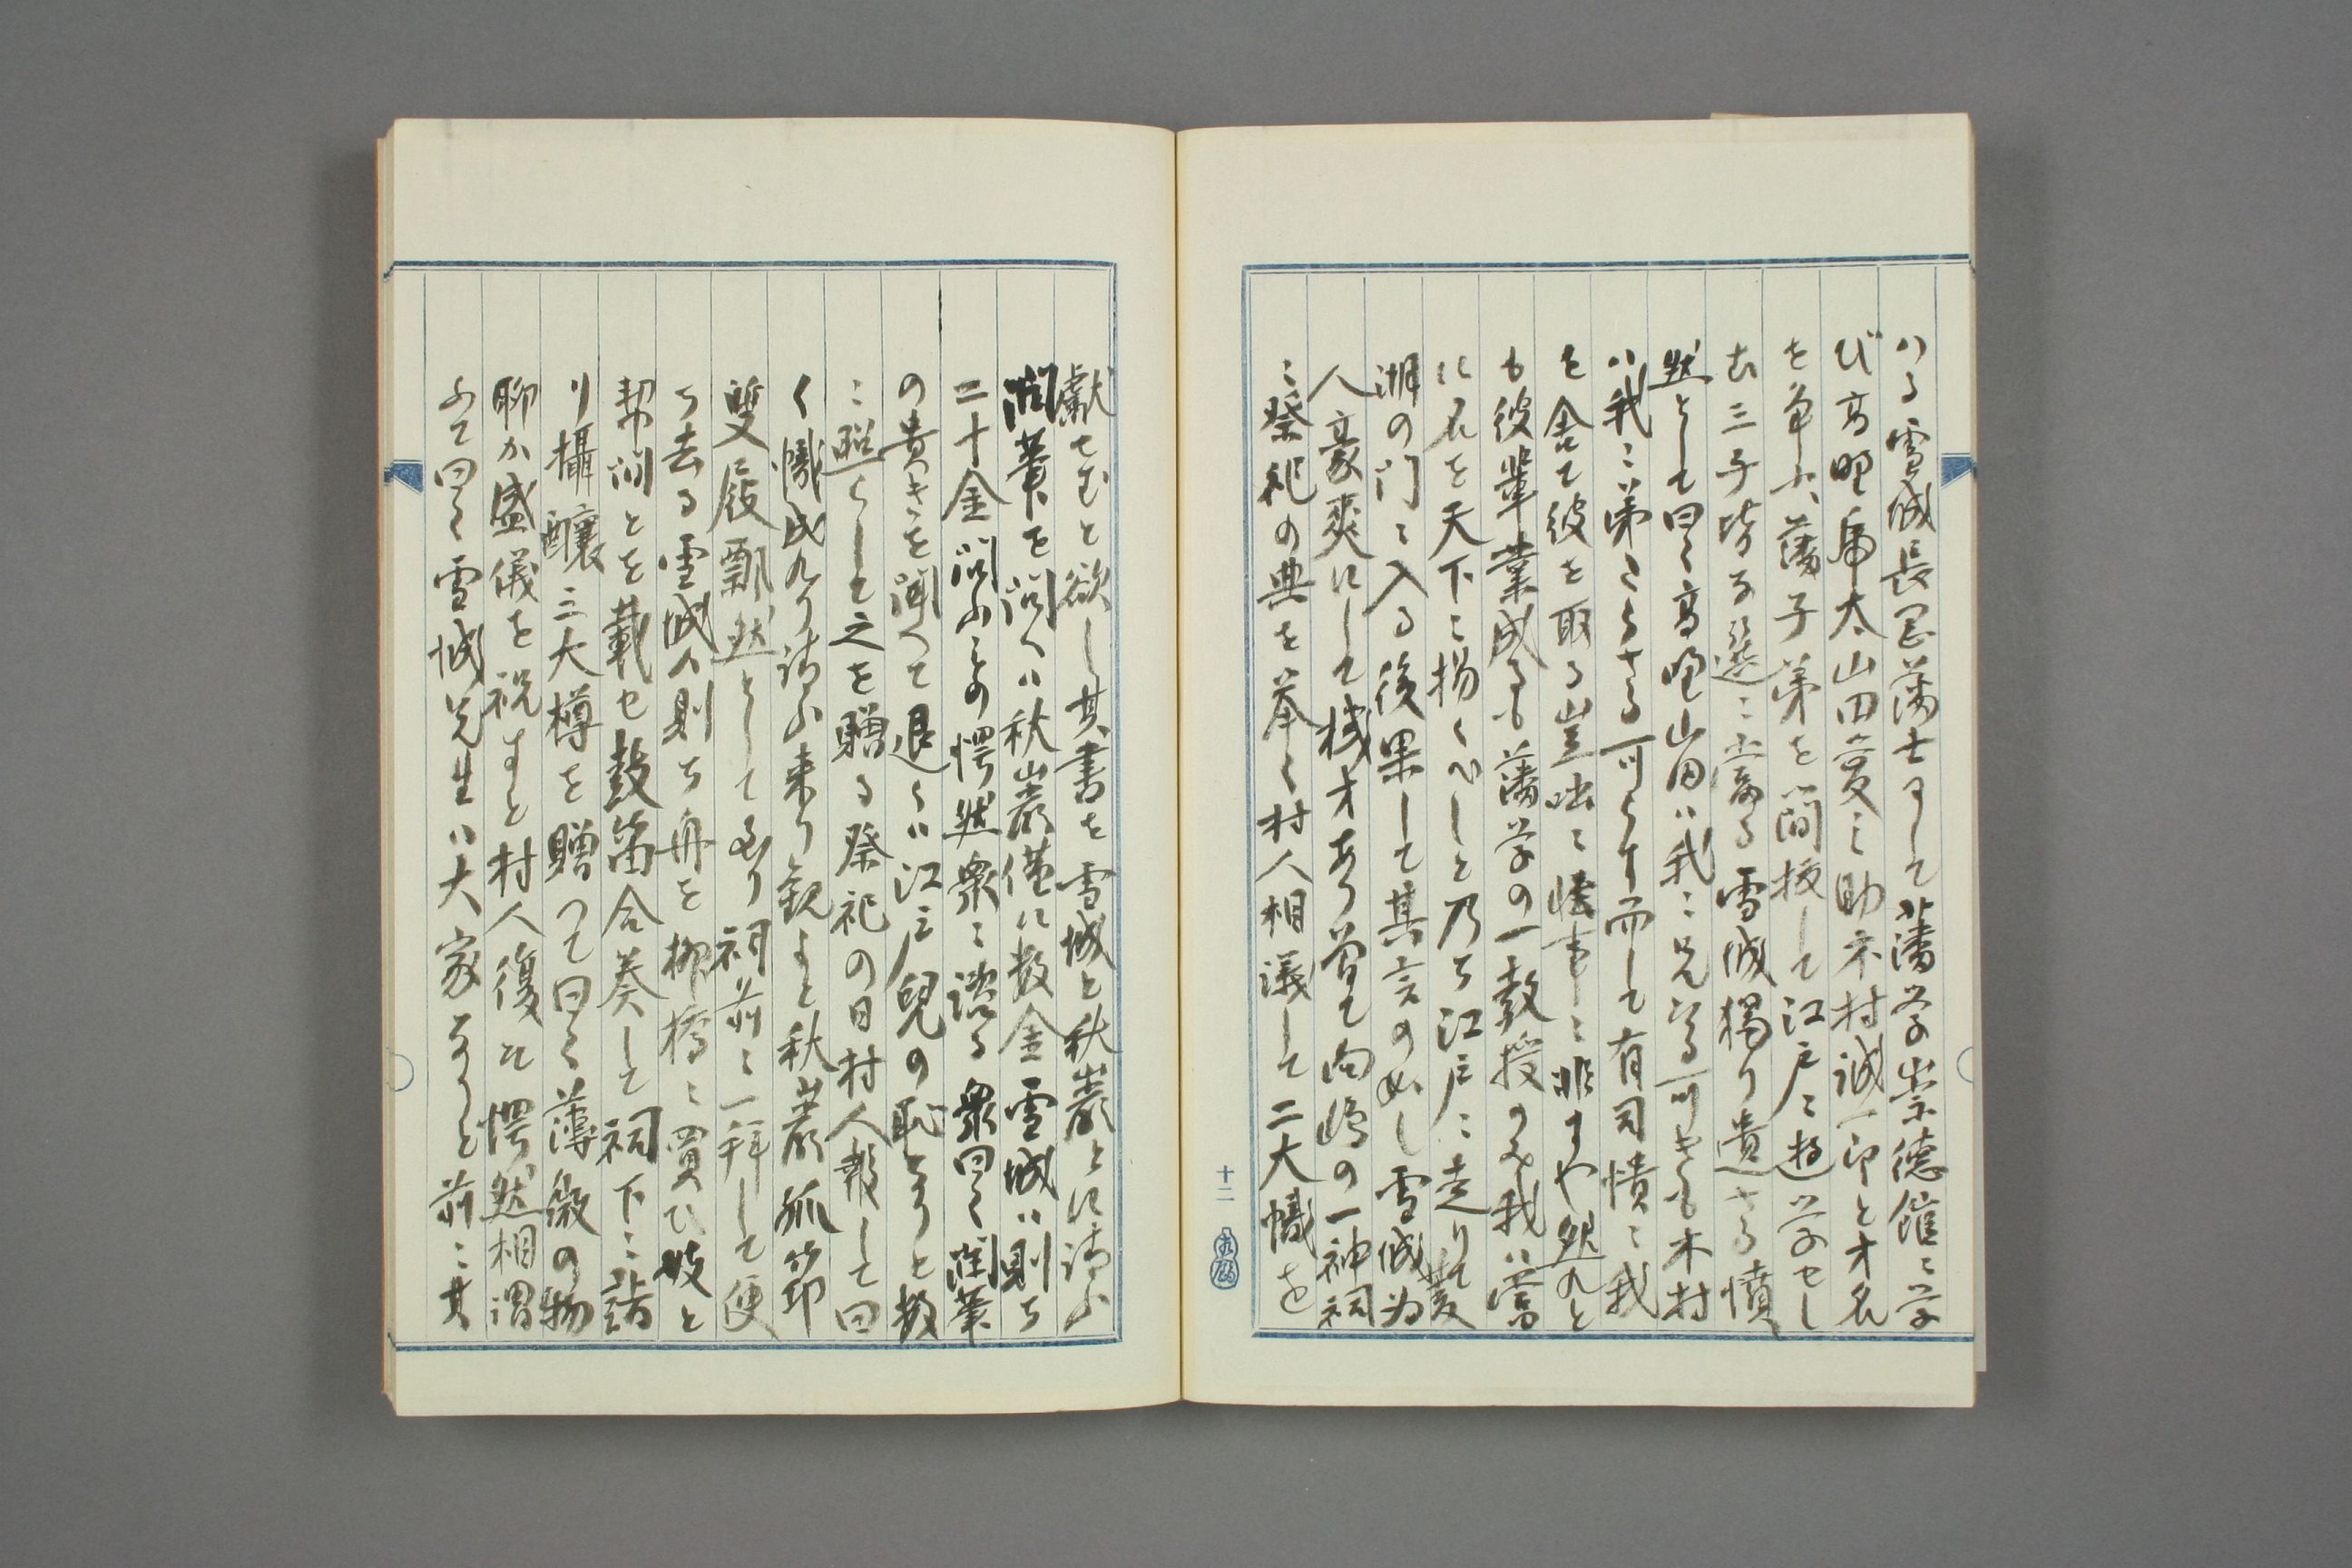 ハる雪城長岡藩士にして藩学崇徳館に学
び高野虎太山田愛之助木村誠一郎と才名
を争ふ藩子弟を簡抜して江戸に遊学せし
む三子皆な選に当る雪城独り遺さる憤
然として曰く高野山田ハ我に兄たる可きも木村
ハ我に弟たらさる可らす而して有司憒々我
を舎て彼を取る豈咄々怪事に非すや然れと
も彼輩業成るも藩学の一教授のみ我ハ当
に名を天下に揚くへしと乃ち江戸に走りて菱
湖の門に入る後果して其言の如し雪城為
人豪爽にして機才あり曽て向嶋の一神祠
に祭祀の典を挙く村人相議して二大幟を
十二
献せむと欲し其書を雪城と秋巌とに請ふ
潤筆を問へハ秋巌僅に数金雪城ハ則ち
二十金問ふもの愕然衆に謀る衆曰く潤筆
の貴きを聞て退くハ江戸児の恥なりと数
に照らして之を贈る祭祀の日村人報して曰
く幟成れり請ふ来り観よと秋巌孤笻
雙屐飄然として到り祠前に一拝して便
ち去る雪城ハ則ち舟を柳橋に買ひ妓と
幇間とを載せ鼓笛合奏して祠下に詣
り攝醸三大樽を贈つて曰く薄微の物
聊か盛儀を祝すと村人復た愕然相謂
ふて曰く雪城先生ハ大家なりと前に其